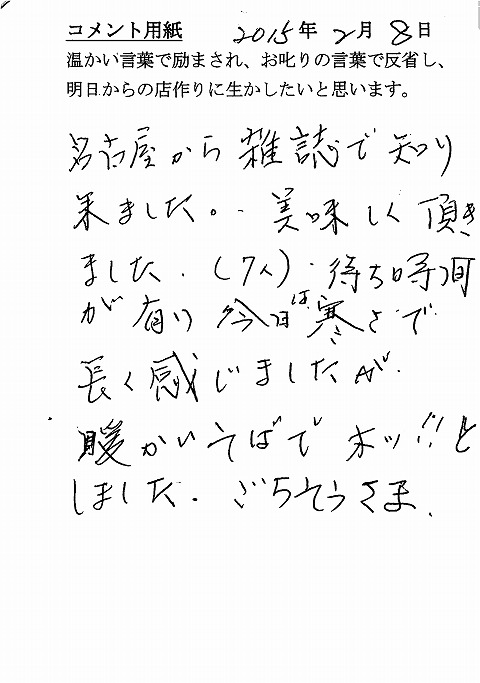 コメント用紙 2015年2月8日
温かい言葉で励まされ、お叱りの言葉で反省し、
明日からの店作りに生かしたいと思います。
名古屋から雑誌で知り
来ました。美味しく頂き
ました.(7人).待ち時間
が有り今日は寒さで
長く感じましたが.
暖かいそばでホッ!!と
しました.ごちそうさま.